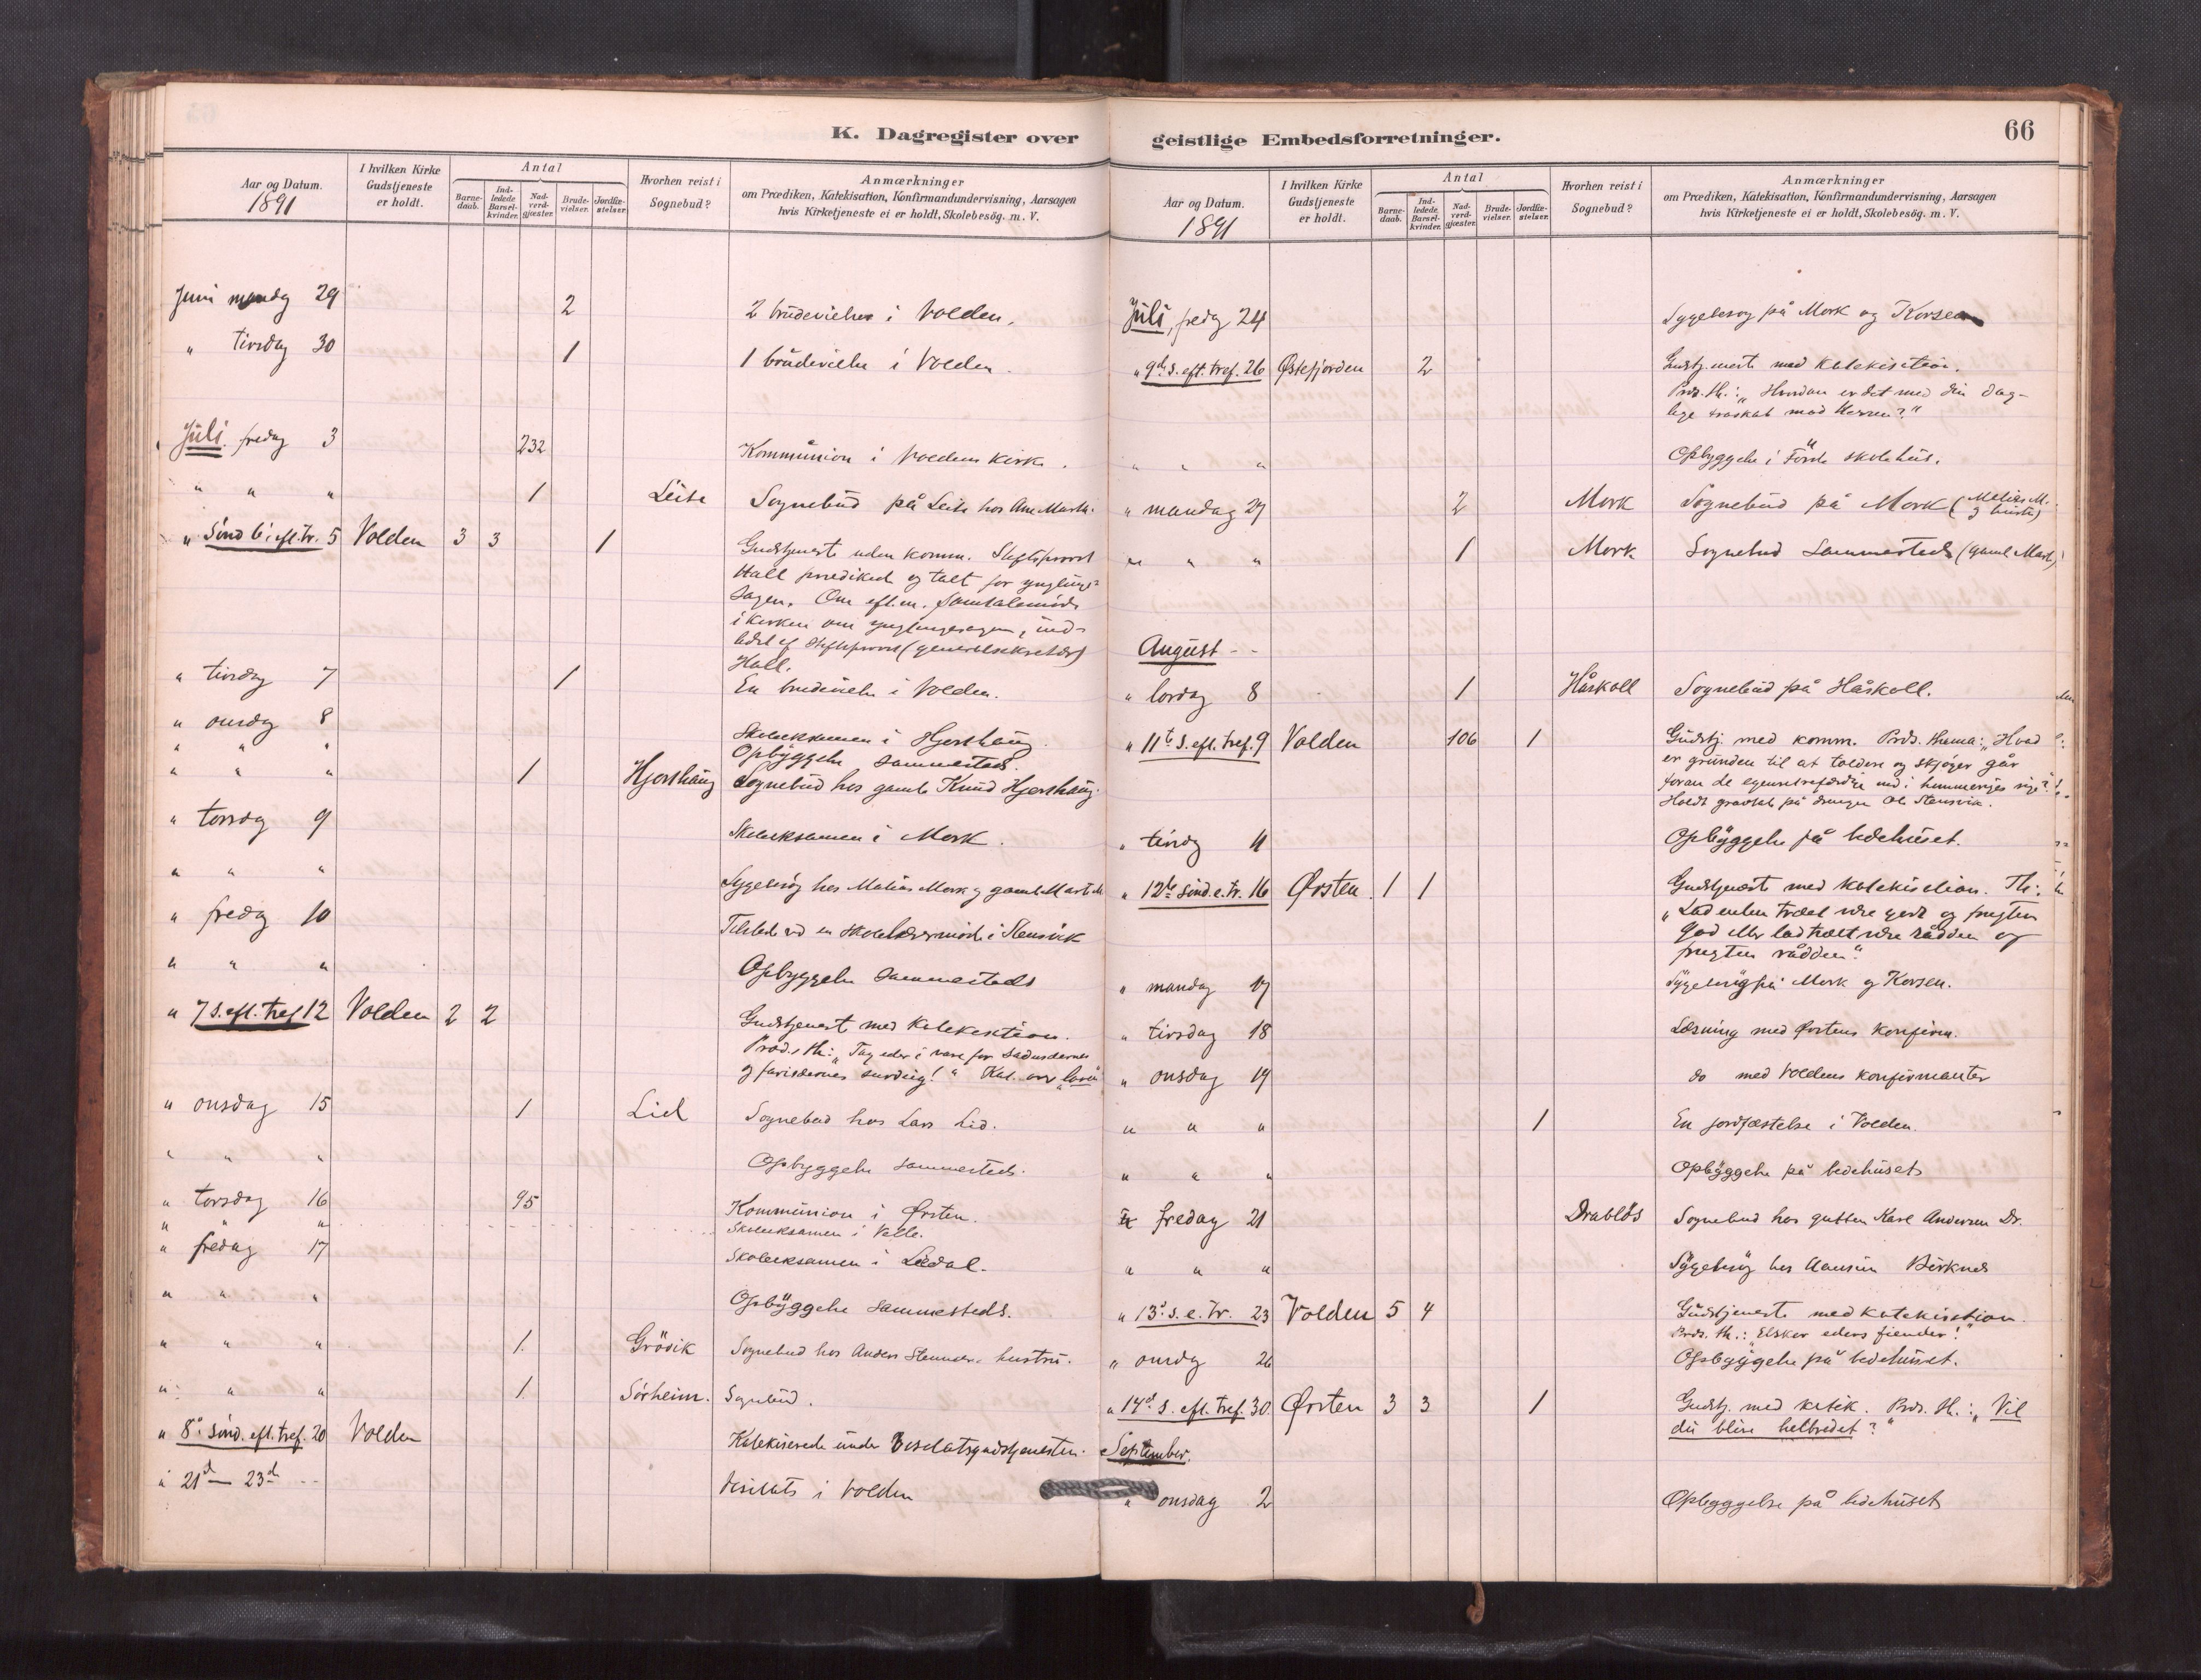 K. Dagregister over
Aar og Datum.
1891
I hvilken Kirke Gudstjeneste er holdt.
Antal
Barne-daab.
Ind-ledede Barsel-kvinder.
Nad-verd-gjæster.
Brude-vielser.
Jordfæ-stelser.
Hvorhen reist i Sognebud?
Anmærkninger
om Prædiken, Katekisation, Konfirmandundervisning, Aarsagen
hvis Kirketjeneste ei er holdt, Skolebesög. m. V.
Juni mandg 29 2 2 brüdevielser i Volden.
" tirsdag 30 1 1 brüdevielse i Volden.
Juli fredag 3 232 Kommünion i Voldens kirke.
" " " 1 Leite Sognebüd på Leite hos Ane Marta.
" Sönd 6. eft. tr. 5 Volden 3 3 1 Gudstjeneste uden komm. Stiftsprovst
Hall prædiked og talt for ynglings-
sagen. Om eft.m. samtalemöde
i kirken om ynglingesagen, ind-
ledet af stiftsprovst (generalsekretær)
Hall.
" tirsdag 7 1 En brudevielse i Volden.
" onsdg 8 Skoleeksamen i Hjorthaüg
" " " Opbyggelse sammesteds.
" " " 1 Hjorthaüg Sognebüd hos gamle Knüd Hjorthaüg.
" torsdg 9 Skoleeksamen i Mork.
" " " Sygebesög hos Matias Mork og gamle Marte M
" fredg 10 Tilstede ved en skolelærermöde i Stensvik
" " " Opbyggelse sammesteds
" 7 s. eft. tref 12 Volden 2 2 Gudstjeneste med katekisation.
Præd.s th.: "Tag eder i vare for saduceernes
og farisæernes surdeig!" Kat. over
" onsdag 15 1 Lid Sognebud hos Lars Lid.
" " " Opbyggelse sammesteds.
" torsdag 16 95 Kommünion i Ørsten.
" " " Skoleeksamen i Velle.
" fredag 17 Skoleeksamen i Lidal.
" " " Opbyggelse sammesteds.
" " " 1. Grövik Sognebud hos Anders hustrü.
" " " 1. Sörheim. Sognebüd.
" 8d sönd. eft. tref. 20 Volden Katekiserede ünder visitatsgudstjenesten.
" 21d — 23d Visitats i Volden
geistlige Embedsforretninger.
66
Aar og Datum.
1891
I hvilken Kirke Gudstjeneste er holdt.
Antal
Barne-daab.
Ind-ledede Barsel-kvinder.
Nad-verd-gjæster.
Brude-vielser.
Jordfæ-stelser.
Hvorhen reist i Sognebud?
Anmærkninger
om Prædiken, Katekisation, Konfirmandundervisning, Aarsagen
hvis Kirketjeneste ei er holdt, Skolebesög. m. V.
Jüli, fredg 24 Sygebesög på Mork og Korsen
" 9de s. eft. tref. 26 Østefjorden 2 Gudstjeneste med katekisation.
Præd. th.: "Hvordan er det med din dag-
lige troskab mod Herren?"
" " " Opbyggelse i Förde skolehüs.
" mandag 27 2 Mork Sognebüd på Mork (Matias M. og hustr)
" " " 1 Mork Sognebud sammesteds (gamle Marte)
August
" lördag 8 1 Håskoll Sognebüd på Håskoll.
" 11te s. eft. tref. 9 Volden 106 1 Güdstj. med komm. Præd. thema: "Hvad
er gründen til at toldere og skjöger går
foran de egenretfærdige ind i himmeriges rige?"
Holdt gravtale på drengen Ole Stensvik.
" tirsdg 11 Opbyggelse på bedehüset.
" 12te sönd. e. tr. 16 Ørsten 1 1 Gudstjeneste med katekisation. Th.:
"Lad enten træet være godt og frugten
god eller lad træet være rådden og
frugten rådden".
" mandag 17 Sygebesög på Mork og Korsen.
" tirsdag 18 Læsning med Ørstens konfirm.
" onsdag 19 do med Voldens konfirmanter
" " " 1 En jordfæstelse i Volden.
" " " Opbyggelse på bedehüset
" fredag 21 Drablös Sognebud hos gutten Karl Andersen Dr.
" " " Sygebesög hos Birknes
" 13d s. e. tr. 23 Volden 5 4 Güdstjeneste med katekisation
Præd. th.: "Elsker eders fiender!"
" onsdg 26 Opbyggelse på bedehüset.
" 14d s. eft. tref. 30. Ørsten 3 3 1 Gudstj. med katek. Præd. th.: "Vil
dü blive helbredet?"
September.
" onsdag 2 Opbyggelse på bedehüset